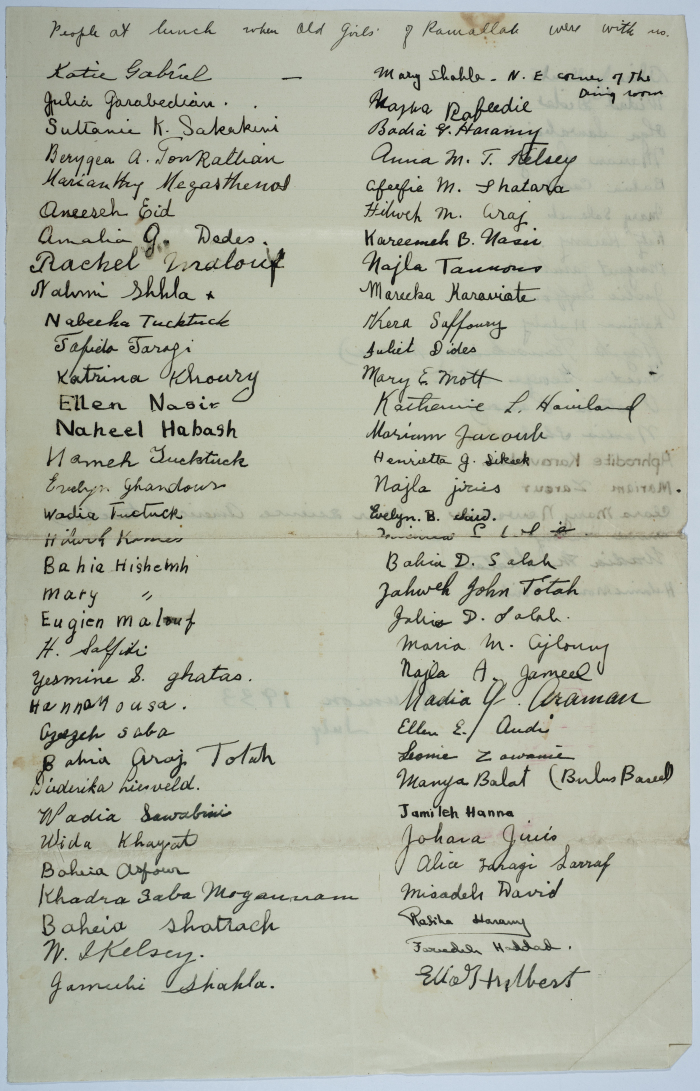 People at lunch when Old Girls of Ramallah were with us.
Katie Gabriel —
Julia Garabedian.
Sultanie K. Sakakini
Berygea A. Tonkathian
Marianthy Megasthenos
Aneeseh Eid
Amalia G. Dedes.
Rachel Malouf
Nahmi Shhla
Nabeeha Tucktuck
Tafida Taragi
Katrina Khoury
Ellen Nasir
Naheel Habash
Hameh Tucktuck
Evelyn Ghandour
Wadia Tuctuck
Hilweh
Bahia Hishemh
Mary "
Eugien Malouf
H. Saffidi
Yesmine S. ghatas.
Hanna Mousa.
Azezeh Saba
Bahia Araj Totah
Diederika Liesveld.
Wadia Sawabini
Wida Khayat
Baheia Asfour
Khadra Saba Mogannam
Baheia Shatrach
W. I Kelsey.
Jameelie Shahla.
Mary Shahla - N. E corner of the Dining room
Majha Rafeedie
Badia G. Haramy
Anna M. T. Kelsey
Afeefie M. Shatara
Hilweh M. Araj
Kareemeh B. Nasir
Najla Tannous
Mareeka Karaviate
Vera Saffoury
Juliet Dides
Mary E. Mott
Katherine L. Haviland
Mariam Jacoub
Henrietta G. Siksek
Najla jiries
Evelyn. B.
Bahia D. Salah
Zahweh John Totah
Julia D. Salah.
Maria M. Ajlouny
Najla A. Jameel
Nadia Y. Araman
Ellen E. Audi
Leonie Zawanie
Manya Balat (Bulus Baseel
Jamileh Hanna
Johara Jiries
Alice Taragi Sarraf
Misadeh David
Ratiba Haramy
Fareedeh Haddad.
Ella T Hulbert